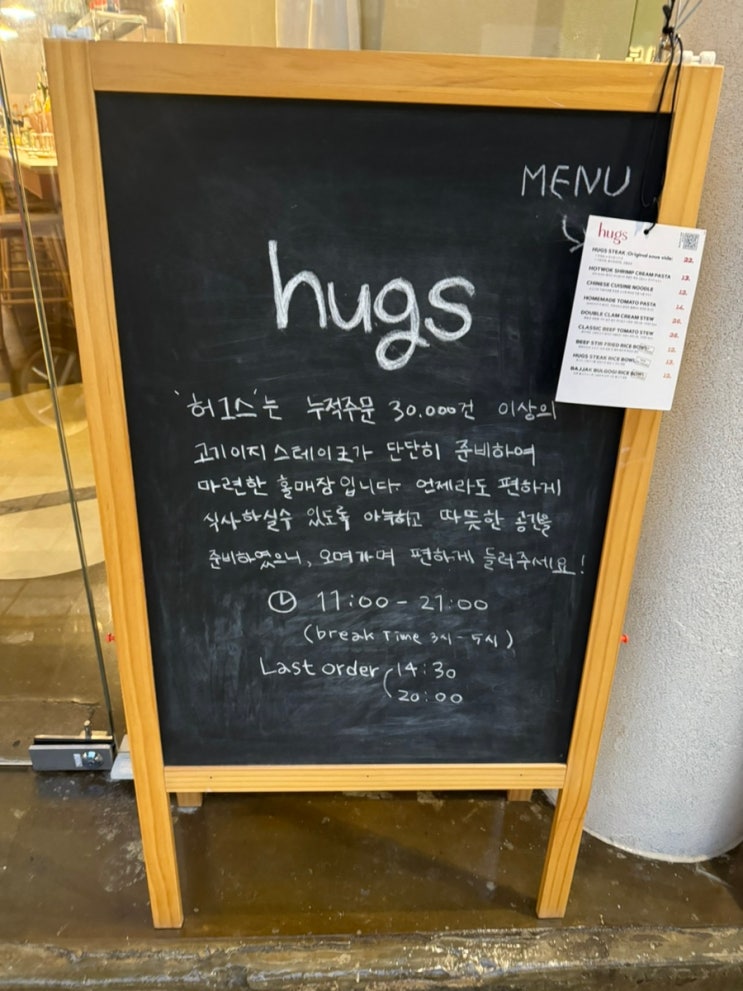 MENU
hugs
'허그스'는 누적주문 30.000건 이상의
고기이지 스테이크가 단단히 준비하여
마련한 홀매장입니다. 언제라도 편하게
식사하실수 있도록 아늑하고 따뜻한 공간을
준비하였으니, 오며가며 편하게 들러주세요!
11:00 - 21:00
(break Time 3시 - 5시)
Last order 14:30
20:00
hugs
HUGS STEAK :Original sous vide:
HOTWOK SHRIMP CREAM PASTA
CHINESE CUISINE NOODLE
HOMEMADE TOMATO PASTA
DOUBLE CLAM CREAM STEW
CLASSIC BEEF TOMATO STEW
BEEF STIR FRIED RICE BOWL
HUGS STEAK RICE BOWL
BAJJAK BULGOGI RICE BOWL